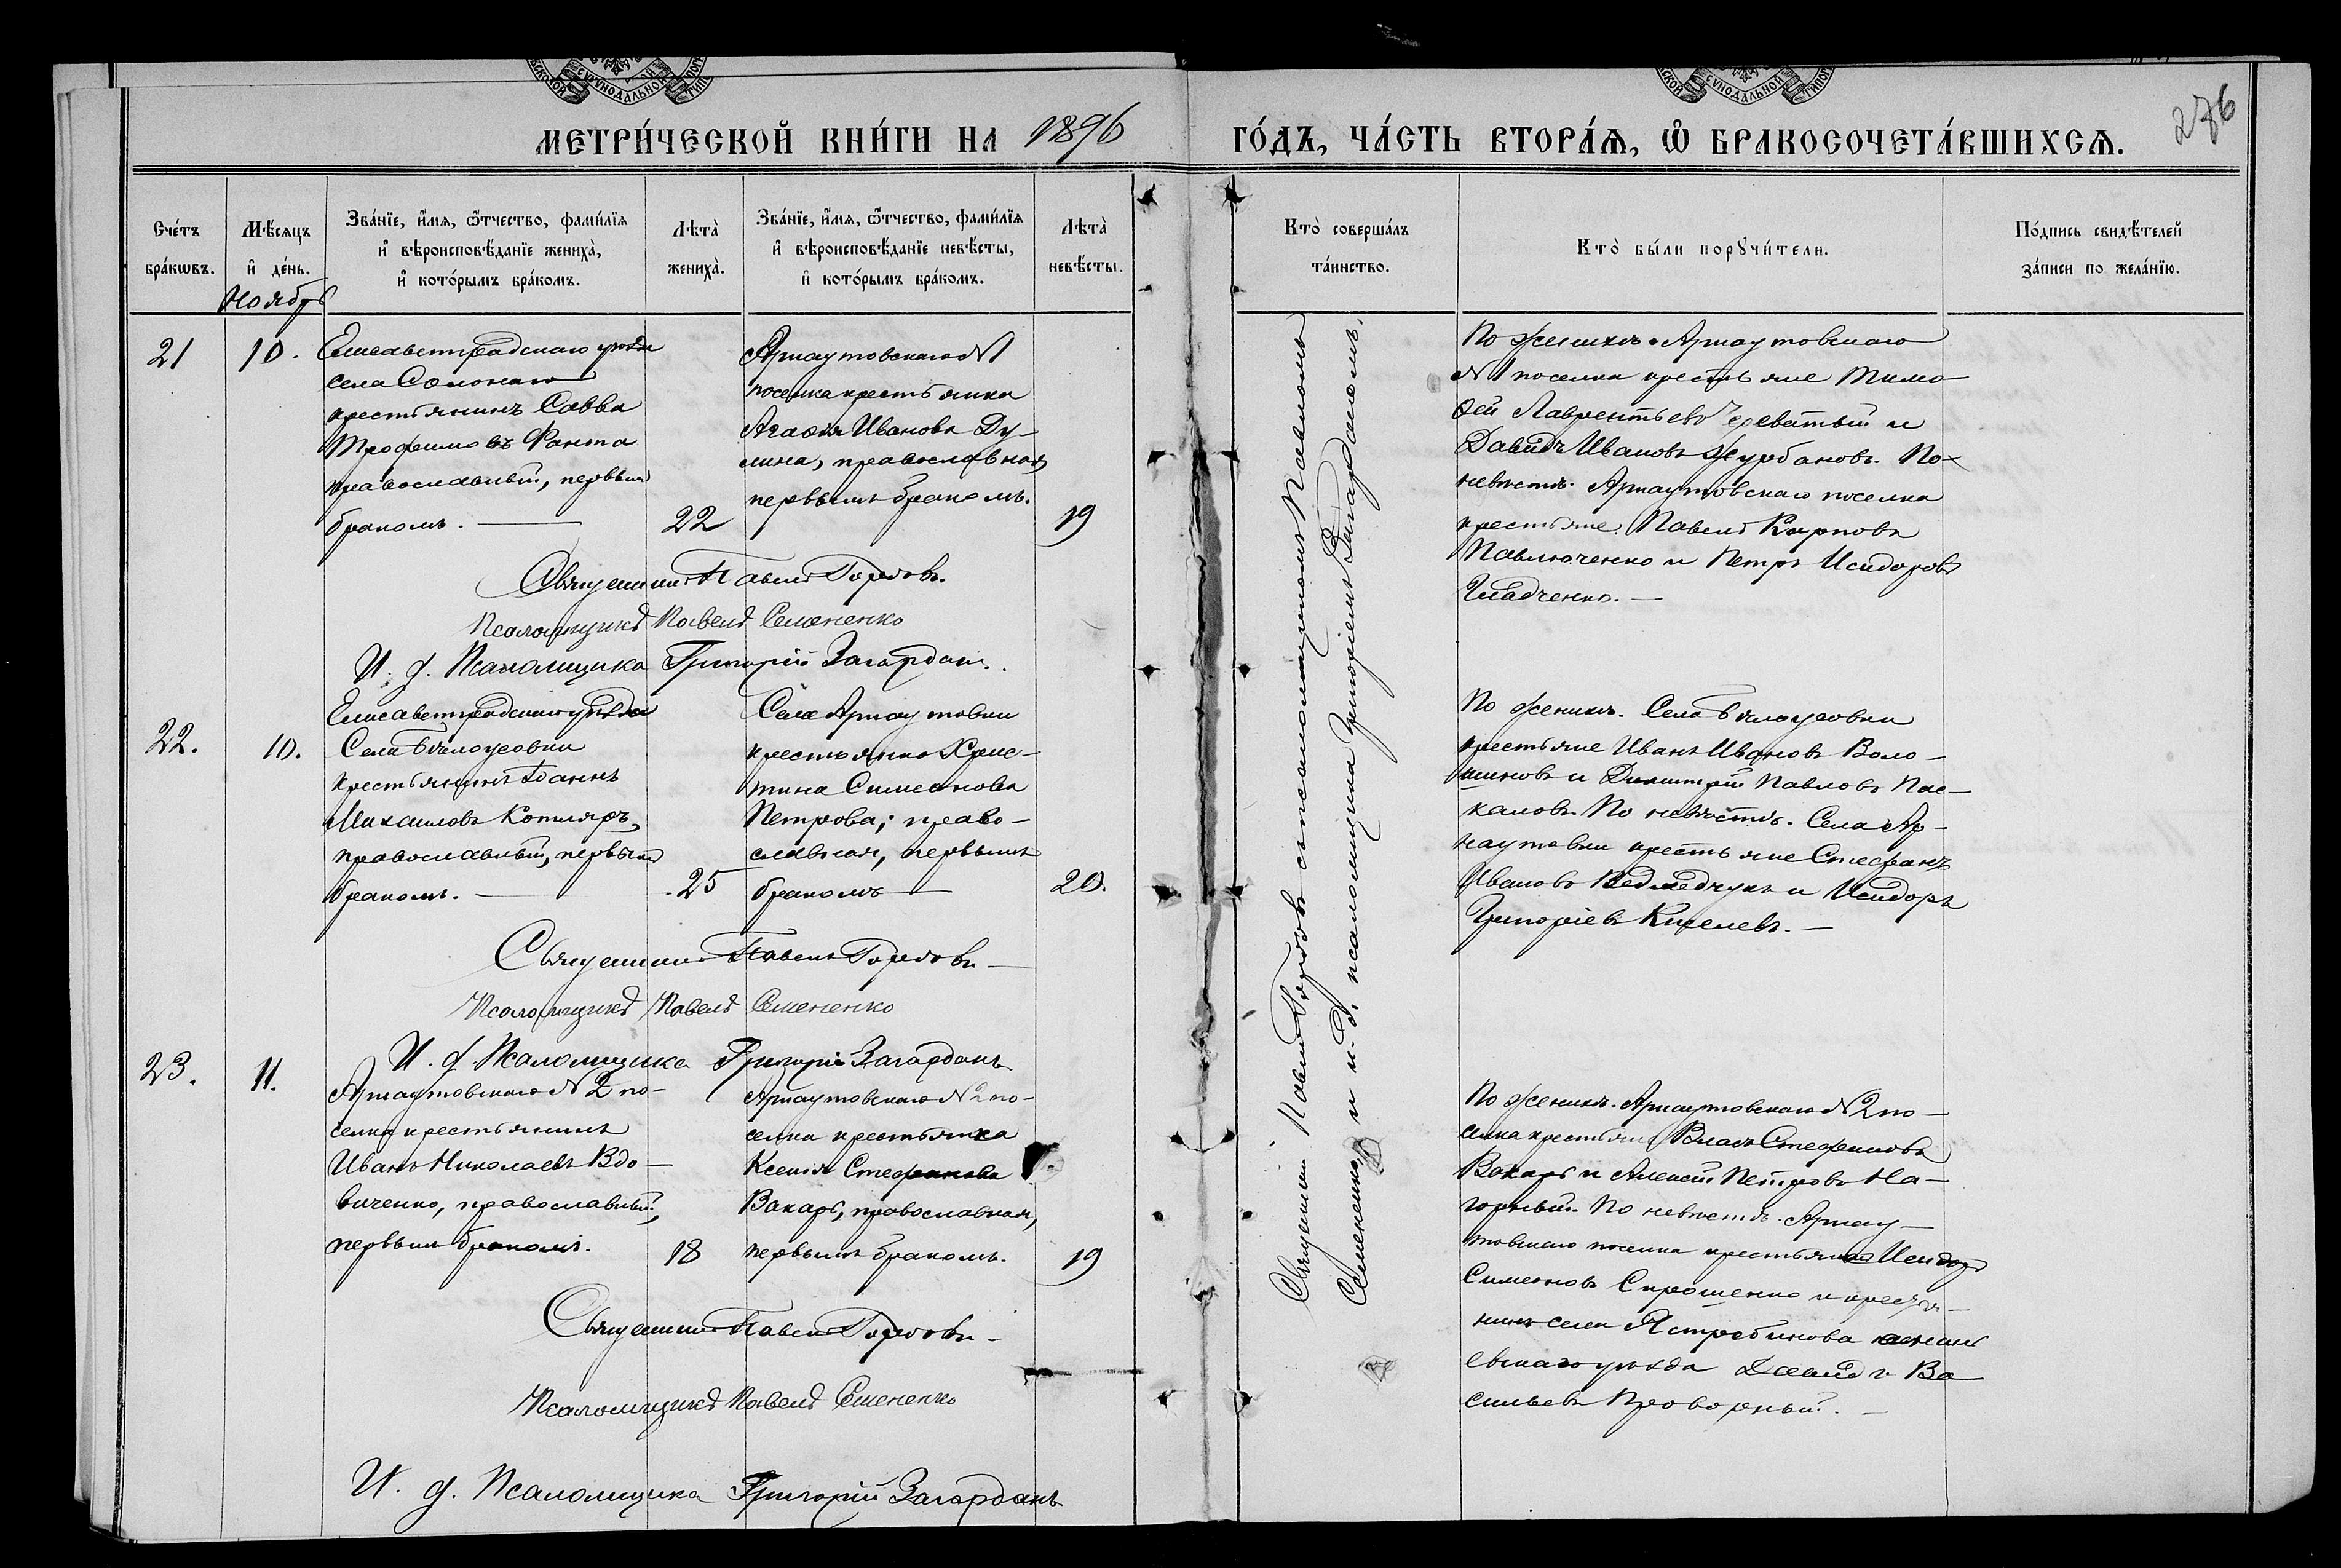 МЕТРИ́ЧЕСКОЙ КНИ́ГИ НА 1896 ГО́ДЪ, ЧА́СТЬ ВТОРА́Ѧ, Ѡ҆ БРАКОСОЧЕТА́ВШИХСѦ.
276
Сче́тъ бра́кѡвъ.
Мѣ́сяцъ и҆ де́нь.
Зва́нїе, и҆́мя, ѻ҆́тчество, фами́лїя и҆ вѣроисповѣ́данїе жениха̀, и҆ кото́рымъ бра́комъ.
Лѣта̀ жениха̀.
Зва́нїе, и҆́мя, ѻ҆́тчество, фами́лїя и҆ вѣроисповѣ́данїе невѣ́сты, и҆ кото́рымъ бра́комъ.
Лѣта̀ невѣ́сты.
Кто̀ соверша́лъ та́инство.
Кто̀ бы́ли порꙋчи́тели.
По́дпись свидѣ́телей за́писи по жела́нїю.
Ноябрь
21
10.
Елисаветградскаго уѣзда
села Солонаго
крестьянинъ Савва
Трофимовъ Фанта
православный, первымъ
бракомъ. —
22
Арнаутовскаго №1
поселка крестьянка
Агафія Иванова Ду-
лина, православная
первымъ бракомъ.
19
По женихѣ. Арнаутовскаго
№1 поселка крестьяне Тимо-
ѳей Лаврентьевъ Череватый и
Давидъ Ивановъ Журбановъ. По
невѣстѣ. Арнаутовскаго поселка
крестьяне. Павелъ Карповъ
Павлюченко и Петръ Исидоровъ
Гладченко. —
Священникъ Павелъ Горбовъ.
Псаломщикъ Павелъ Семененко
И. д. Псаломщика Григорій Загарданъ.
22.
10.
Елисаветградскаго уѣзда
Села Бѣлоусовки
крестьянинъ Іоаннъ
Михаиловъ Котляръ,
православный, первымъ
бракомъ. —
25
Села Арнаутовки
крестьянка Хрис-
тина Симеонова
Петрова; право-
славная, первымъ
бракомъ —
20.
По женихѣ. Села Бѣлоусовки
крестьяне Иванъ Ивановъ Воло-
шиновъ и Димитрій Павловъ Пас-
каловъ. По невѣстѣ. Села Ар-
наутовки крестьяне Стефанъ
Ивановъ Ведмедчукъ и Исидоръ
Григоріевъ Киселевъ. —
Священникъ Павелъ Горбовъ —
Псаломщикъ Павелъ Семененко
И. д. Псаломщика Григорій Загарданъ
23.
11.
Арнаутовскаго №2 по-
селка крестьянинъ
Иванъ Николаевъ Вдо-
виченко, православный,
первымъ бракомъ.
18
Арнаутовскаго №2 по-
селка крестьянка
Ксенія Стефанова
Вакарь, православная,
первымъ бракомъ.
19
По женихѣ. Арнаутовскаго №2 по-
селка крестьяне Власъ Стефановъ
Вакарь и Алексѣй Петровъ На-
горный. По невѣстѣ. Арнау-
товскаго поселка крестьянинъ Исидоръ
Симеоновъ Скрошенко и крестья-
нинъ села Ястребинова
уѣзда Давидъ Ва
сильевъ Проворный. —
Священникъ Павелъ Горбовъ —
Псаломщикъ Павелъ Семененко
И. д. Псаломщика Григорій Загарданъ
Священникъ Павелъ Горбовъ съ псаломщикомъ Павломъ
Семененко и и. д. псаломщика Григоріемъ Загарданомъ.